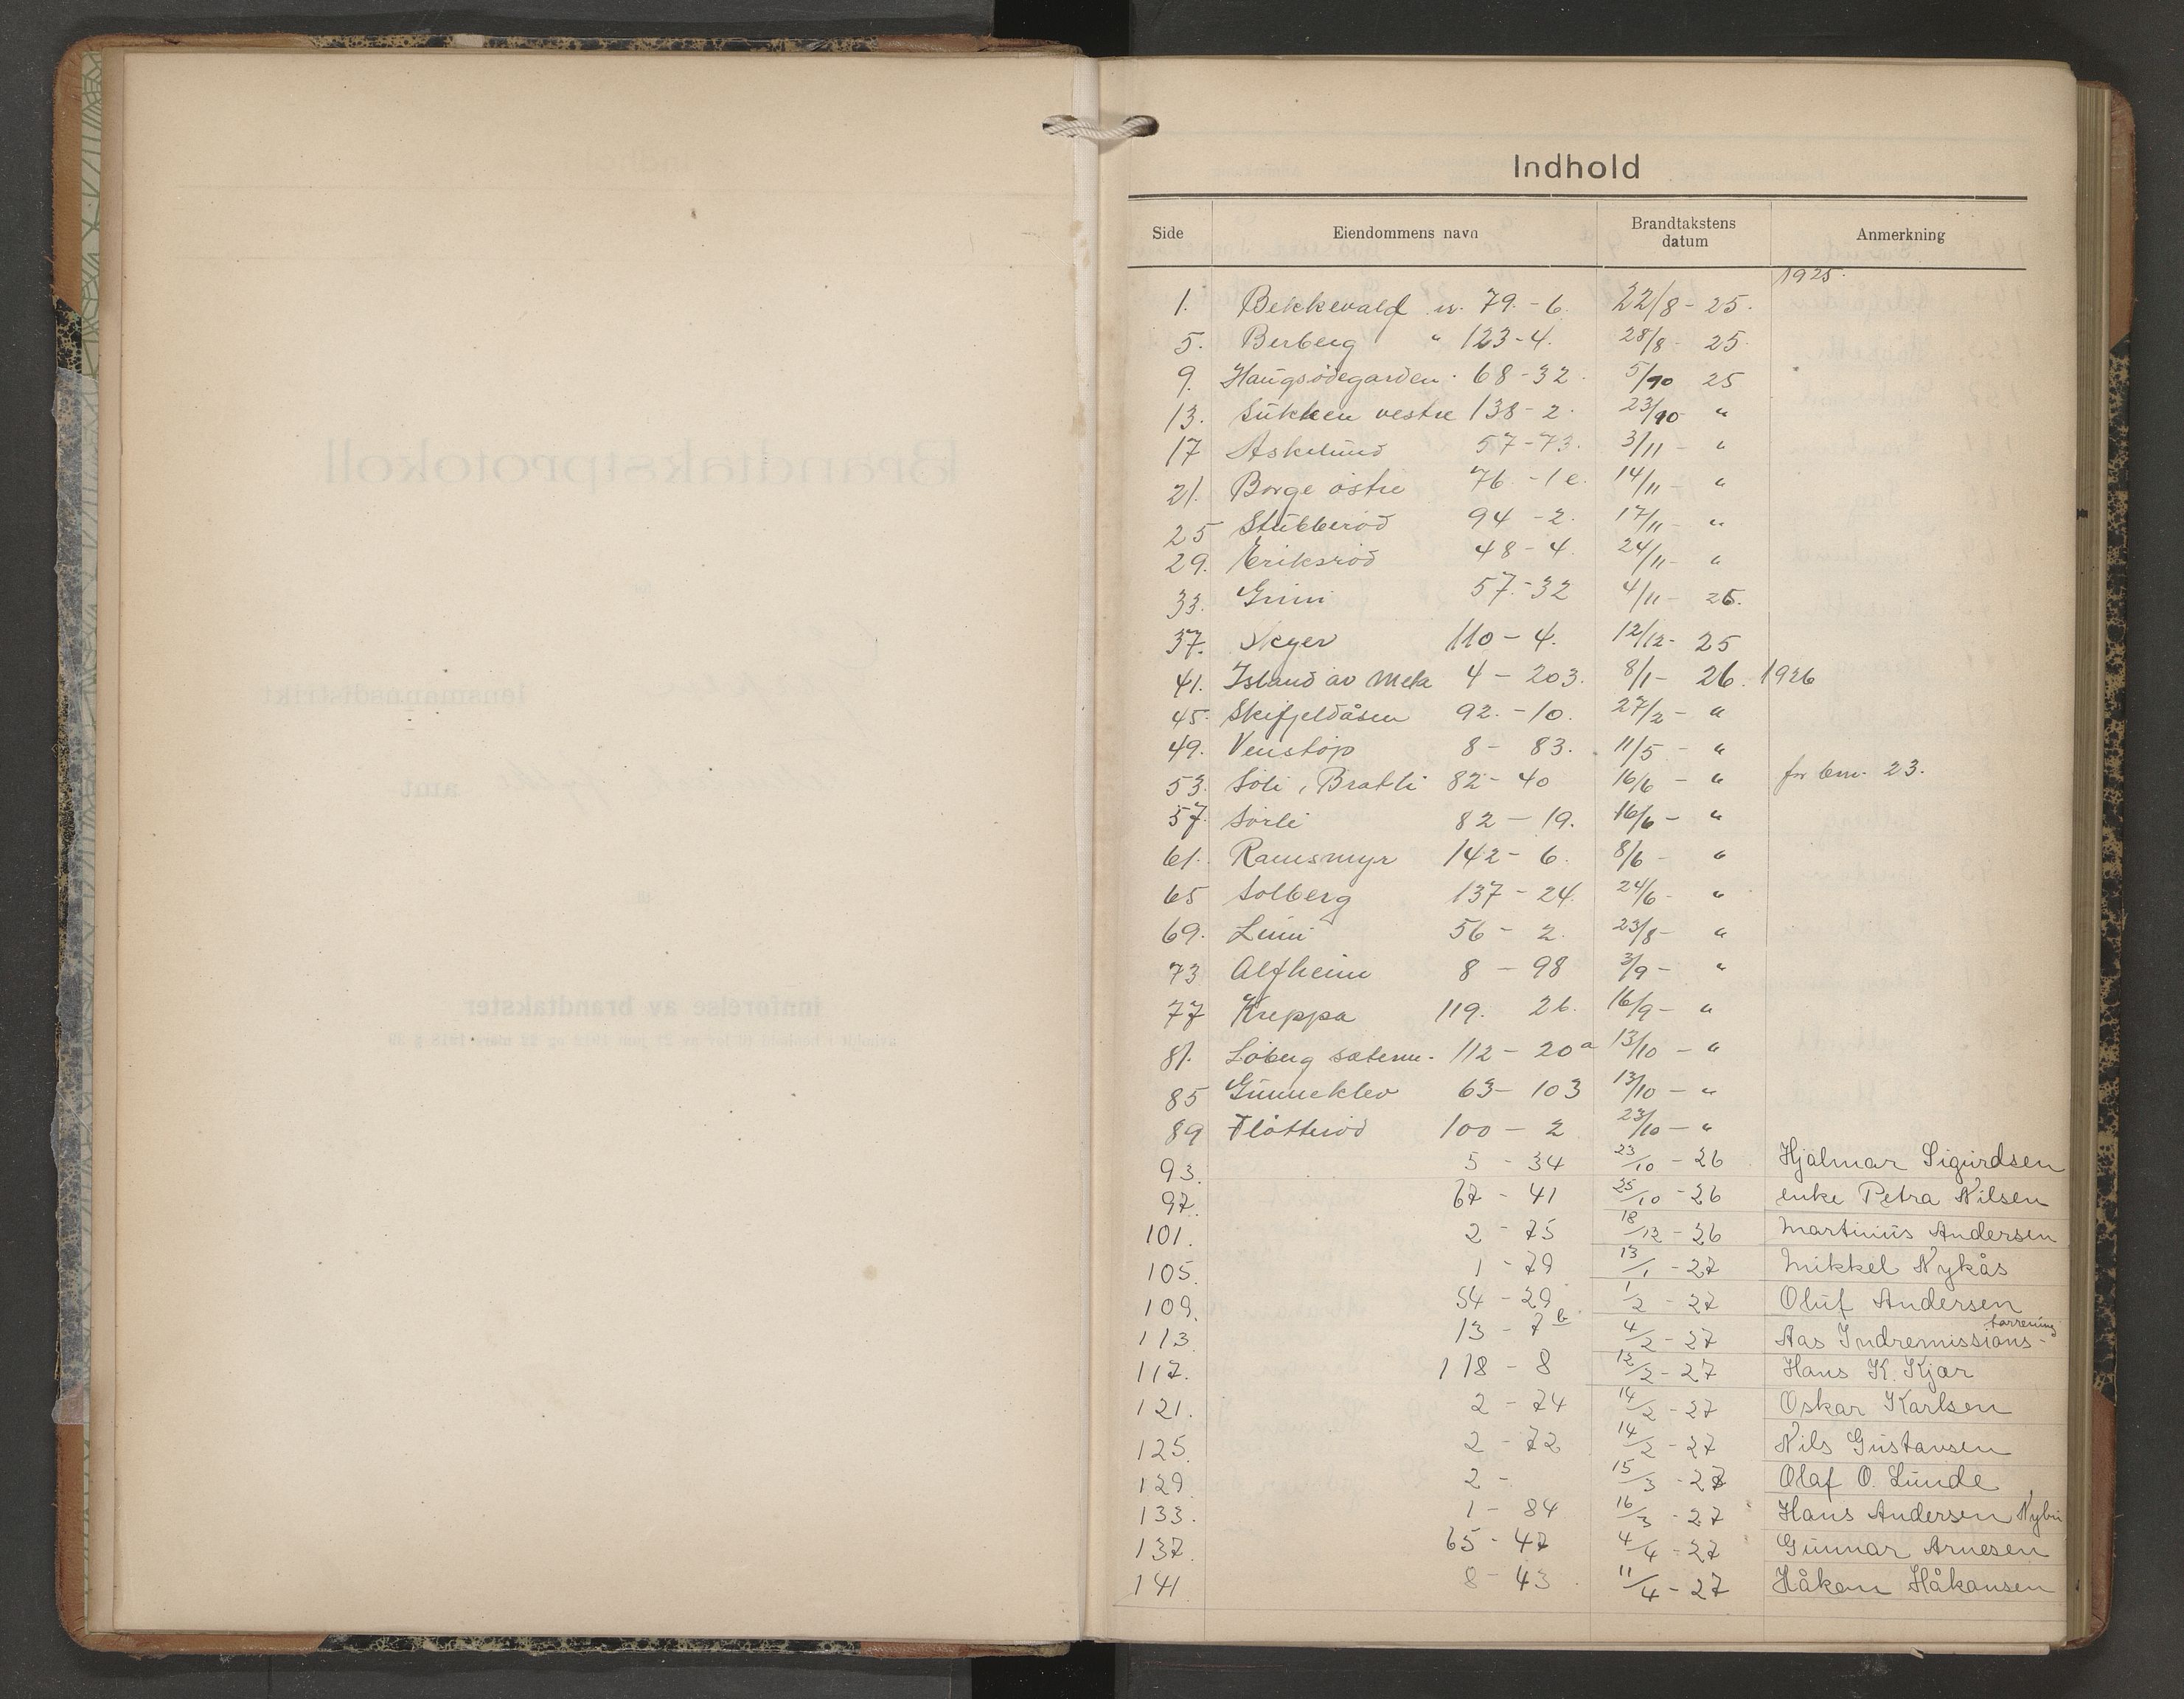 Indhold
Side Eiendommens navn Brandtakstens datum Anmerkning
1925.
1. Bekkevald n. 79.-6. 22/8-25.
5. Berberg " 123-4. 28/8- 25.
9. Haugsödegarden. 68-32. 5/10 25
13. Sükken vestre 138-2. 23/10- "
17 Askelund 57-73. 3/11- "
21. Borge østre 76.-1e. 14/11- "
25 Stübberöd 94-2. 17/11- "
29. Eriksröd 48-4. 24/11- "
33. Grini 57.-32 4/11- 25.
37. Skyer 110-4. 12/12- 25
41. Island av Mela 4-203. 8/1- 26. 1926
45. Skifjeldåsen 92.-10. 27/2- "
49. Venstöp 8-83. 11/5- "
53. Söli, Bratli 82-40 16/6- " for bnr. 23.
57. Sörli 82-19. 16/6- "
61. Ramsmyr 142-6. 8/6- "
65 Solberg 137-24. 24/6- "
69. Limi 56-2. 23/8- "
73 Alfheim 8-98 3/9- "
77 Kreppa 119. 26. 16/9- "
81. Löberg sæterm. 112-20a 13/10- "
85 Günneklev 63-103 13/10- "
89 Flåtteröd 100-2 23/10- "
93. 5-34 23/10-26 Hjalmar Sigürdsen
97. 67-41 25/10-26 enke Petra Nilsen
101. 2-75 18/12-26 Martinüs Andersen
105. 1-79 13/1-27 Mikkel Nykås
109. 54-29 1/2-27 Olüf Andersen
113. 13-7b 4/2-27 Aas Indremissions-
117. 118-8 12/2-27 Hans K. Kjær
121. 2-74 14/2-27 Oskar Karlsen
125. 2-72 14/2-27 Nils Güstavsen
129. 2- 15/3-27 Olaf O. Lünde
133. 1-84 16/3-27 Hans Andersen
137. 65-47 4/4-27 Günnar Arnesen
141 8-43 11/4-27 Håkon Håkonsen